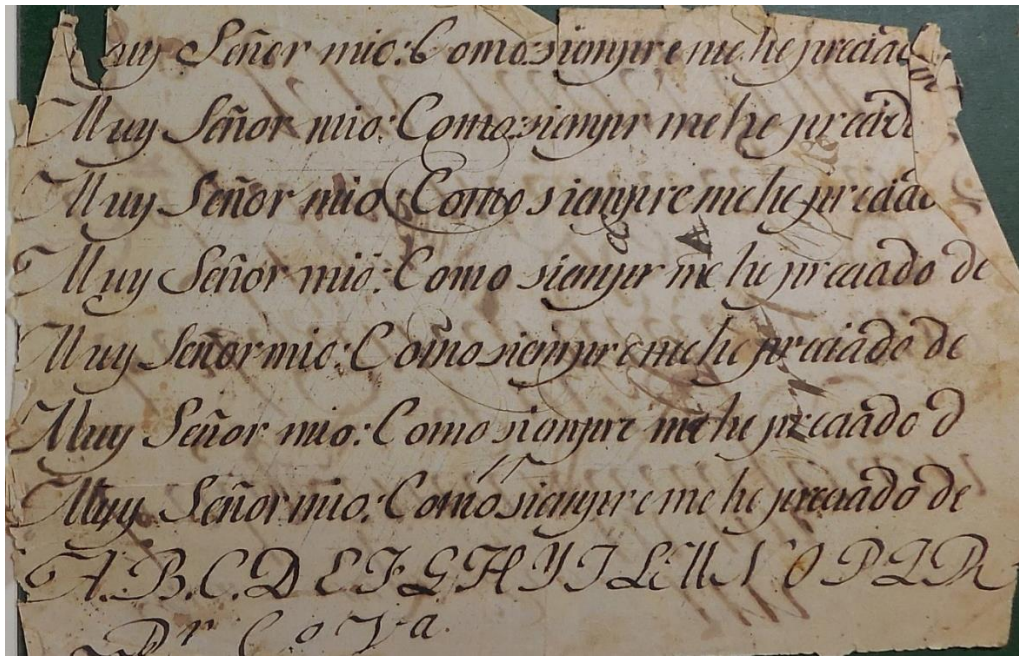 Muy Señor mio: Como: siempre me he preciad
Muy Señor mio: Como: siempr me he preciad
Muy Señor mio: Como siempre me he preciado
Muy Señor mio: Como siempr me he preciado de
Muy Señor mio: Como siempre me he preciado de
Muy Señor mio: Como siempre me he preciado d
Muy Señor mio: Como siempre me he preciado de
A. B. C. D E F G H Y I L M N O P Q R